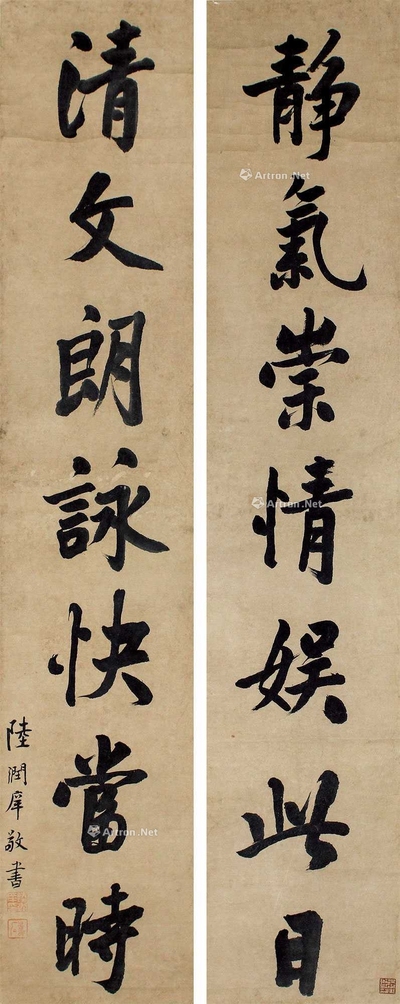 靜氣崇情娛此日
清文朗詠快當時
陸潤庠敬書
Artron.Net
Artron.Net
Artron.Net